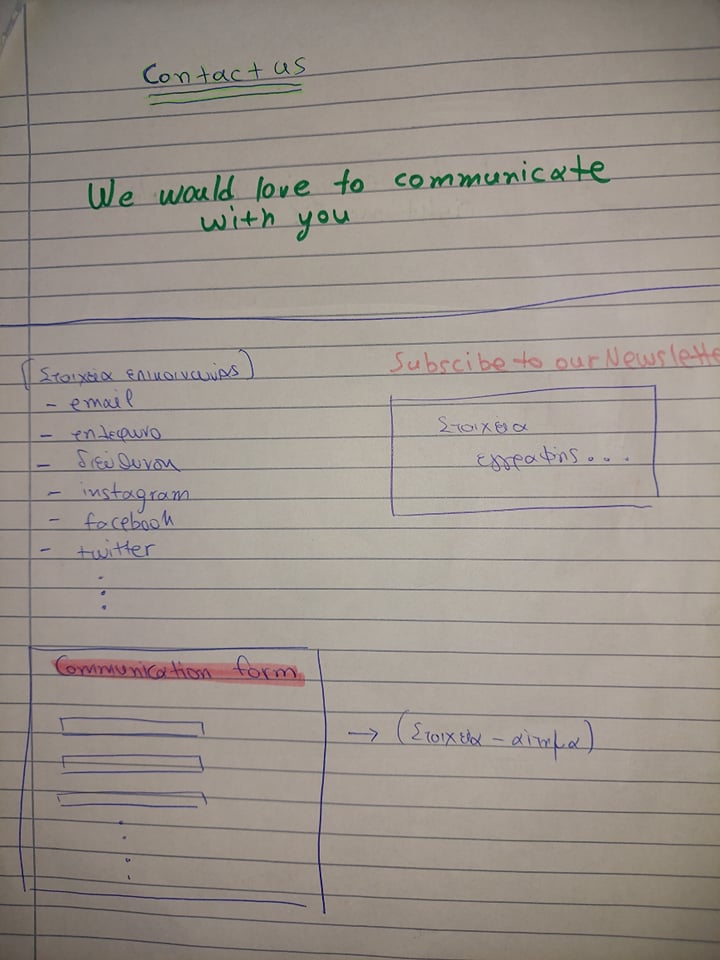 Contact us
We would love to communicate
with you
[Στοιχεία επικοινωνίας]
- email
- τηλέφωνο
- διεύθυνση
- instagram
- facebook
- twitter
Subscibe to our Newslette
Στοιχεία
εγγραφής...
Communication form
→ (Στοιχεία - αίτημα)